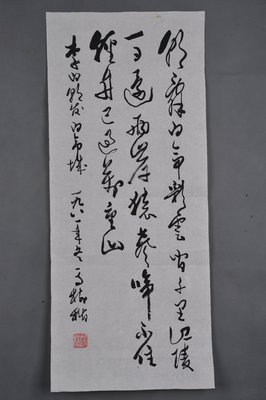 朝辞白帝彩雲间千里江陵
一日還兩岸猿聲啼不住
輕舟已過萬重山
李白朝发白帝城 一九八一年冬